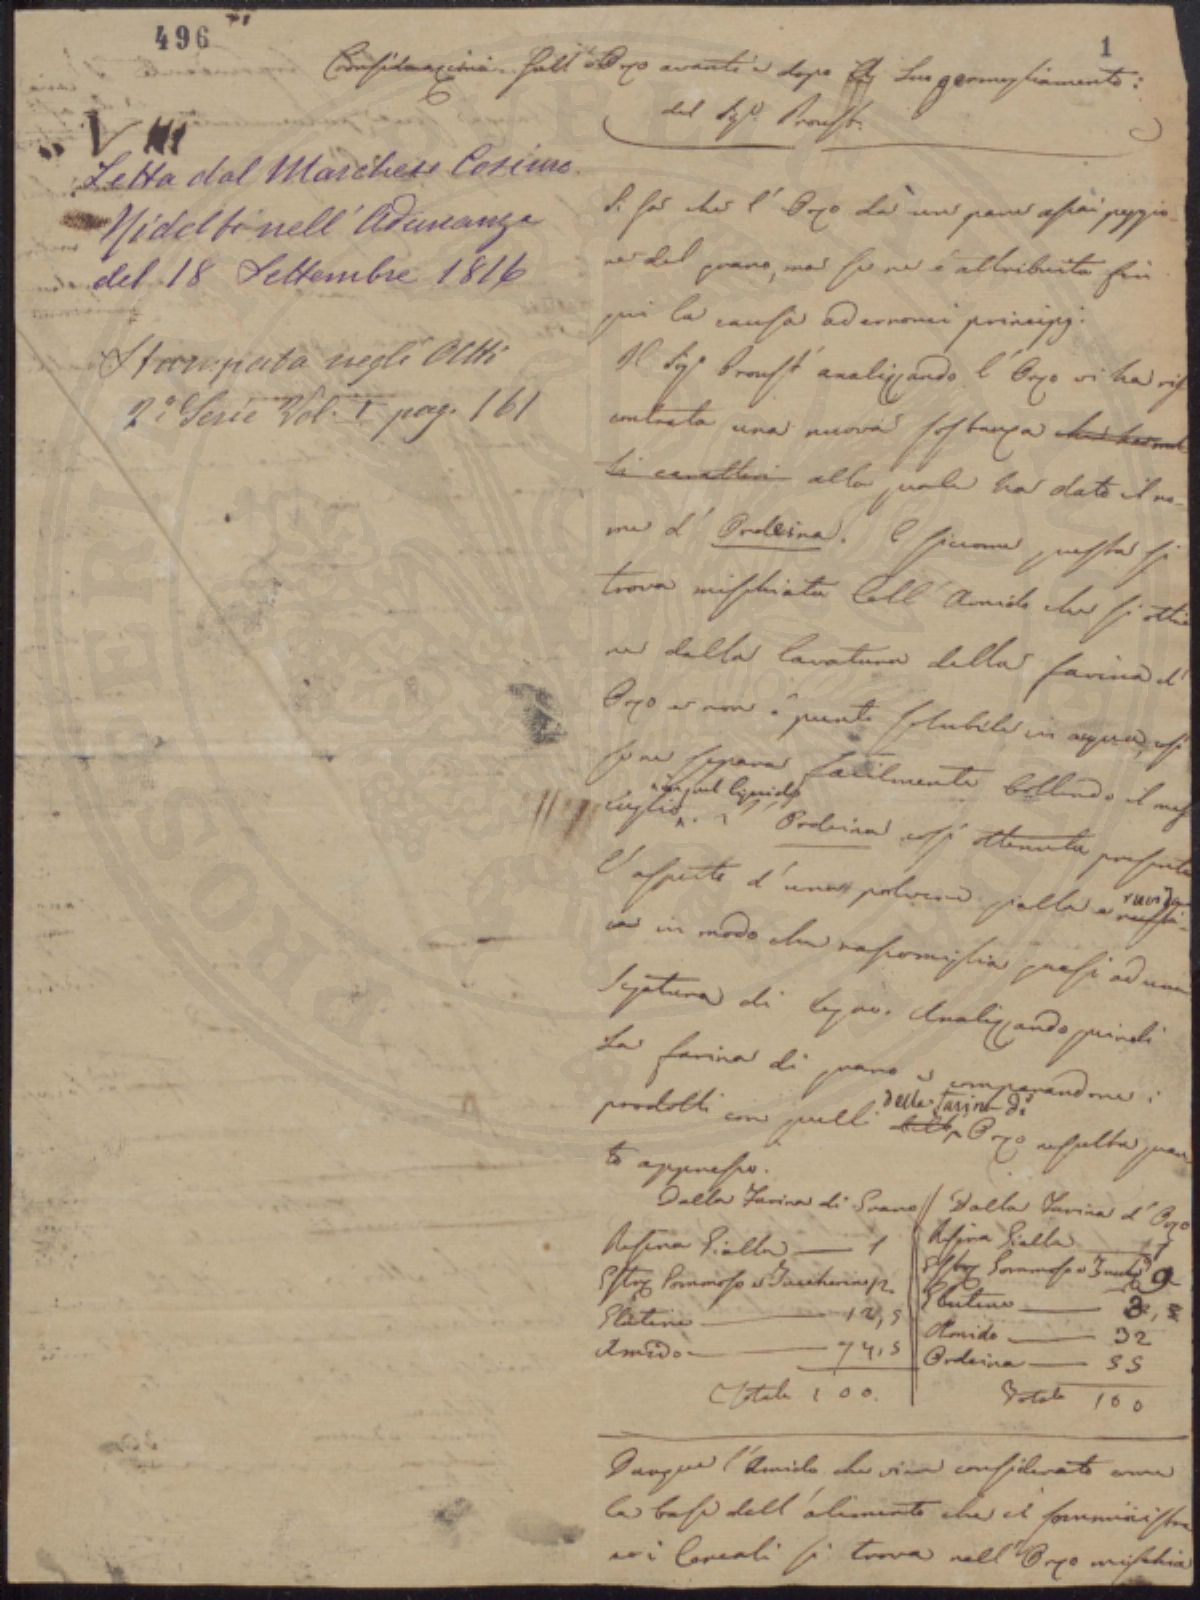 496
1
Considerazioni sull'Orzo avanti e dopo il suo germogliamento:
del Sig.r Proust.
VIII
Letta dal Marchese Cosimo
Ridolfi nell'Adunanza
del 18 Settembre 1816
Stampata negli Atti
2.a Serie Vol. I pag. 161
Si sa che l'Orzo dà un pane assai peggio-
re del grano, ma se ne è attribuita fin
qui la causa ad erronei principj.
Il Sig.r Proust analizzando l'Orzo vi ha ris
contrata una nuova sostanza
ti caratteri alla quale ha dato il no-
me d'Ordeina. E siccome questa si
trova mischiata coll'Amido che si ottie
ne dalla lavatura della farina d'
Orzo e non è punto solubile in acqua, così
se ne separa facilmente bollendo il mes
in quel liquido
cuglio. L'Ordeina così ottenuta presenta
l'aspetto d'una polvere gialla e ruvida
in modo che rassomiglia quasi ad una
segatura di legno. Analizzando quindi
la farina di grano e comparandone i
prodotti con quelli della farina di Orzo resulta quan
to appresso.
Dalla Farina di Grano
Resina Gialla — 1
Estr. Gommoso e Zuccherino 12
Glutine — 12,5
Amido — 74,5
Totale 100.
Dalla Farina d'Orzo
Resina Gialla — 1
Estr. Gommoso e Zucch. 9
Glutine — 3
Amido — 32
Ordeina — 55
Totale 100
Dunque l'Amido che vien considerato come
la base dell'alimento che ci somministra
no i Cereali si trova nell'Orzo mischia